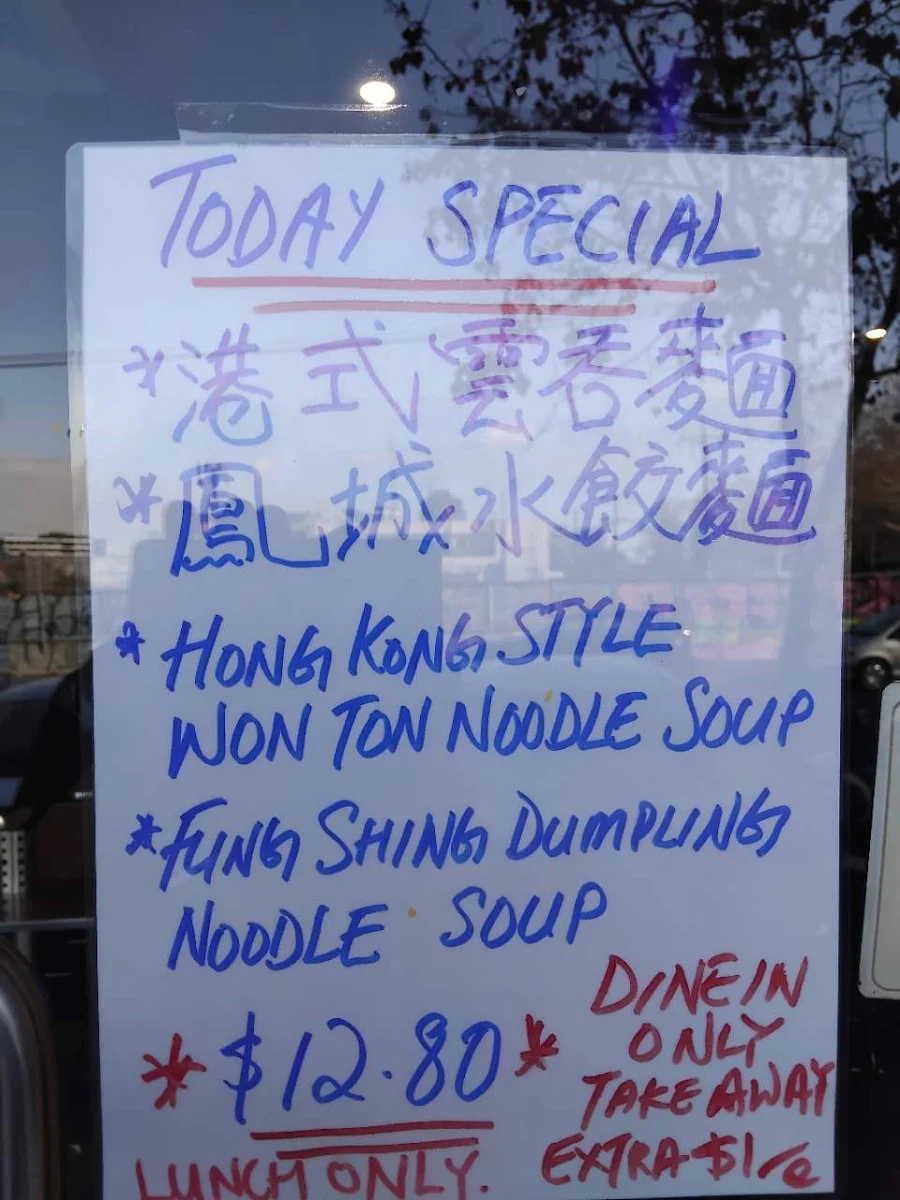 TODAY SPECIAL
*港式雲吞麵
*鳳城水餃麵
*HONG KONG STYLE
WON TON NOODLE SOUP
*FUNG SHING DUMPLING
NOODLE SOUP
*$12.80*
LUNCH ONLY.
DINE IN
ONLY
TAKE AWAY
EXTRA $1/e